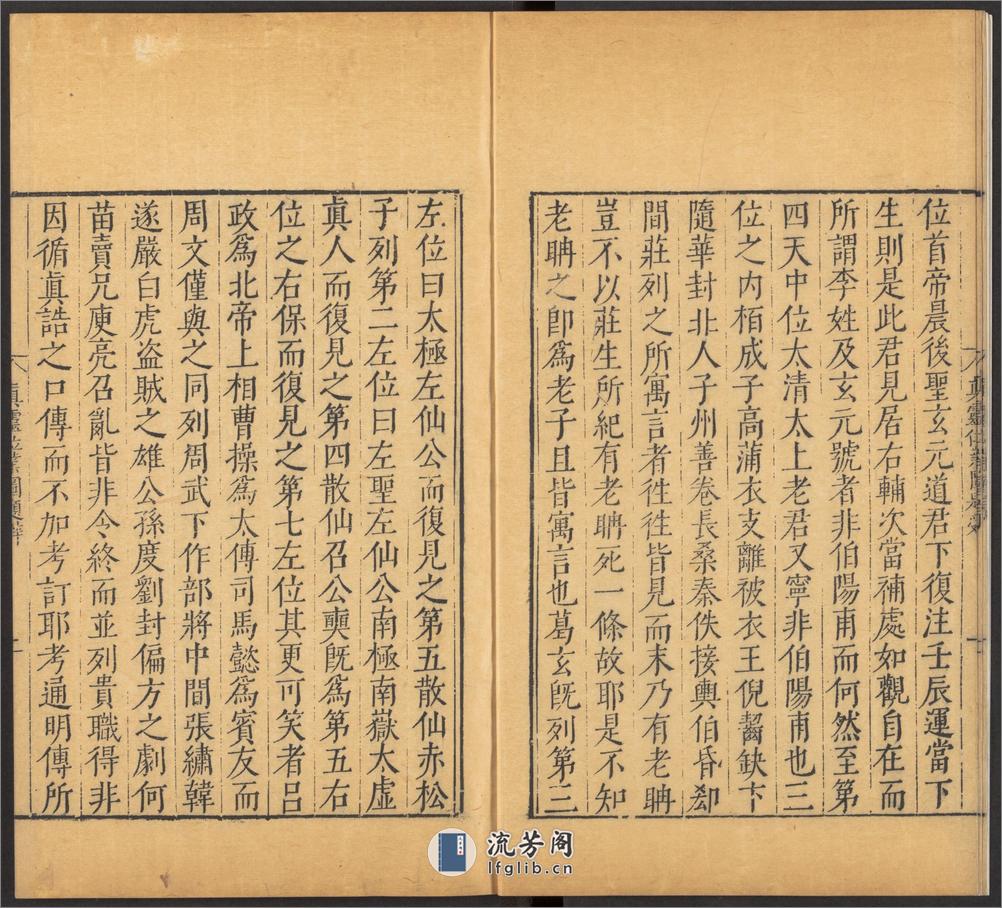 位首帝晨後聖玄元道君下復注壬辰運當下
生則是此君見居右輔次當補處如觀自在而
所謂李姓及玄元號者非伯陽甫而何然至第
四天中位太清太上老君又寧非伯陽甫也三
位之内栢成子高蒲衣支離被衣王倪齧缺卞
隨華封非人子州善卷長桑秦佚接輿伯昏郤
間莊列之所寓言者徃徃皆見而末乃有老聃
豈不以莊生所紀有老聃死一條故耶是不知
老聃之卽為老子且皆寓言也葛玄旣列第三
左位曰太極左仙公而復見之第五散仙赤松
子列第二左位曰左聖左仙公南極南嶽太虛
眞人而復見之第四散仙召公奭旣為第五右
位之右保而復見之第七左位其更可笑者吕
政爲北帝上相曹操爲太傅司馬懿爲賓友而
周文僅與之同列周武下作部將中間張繡韓
遂嚴白虎盗賊之雄公孫度劉封偏方之劇何
苗賣兄庾亮召亂皆非令終而並列貴職得非
因循眞誥之口傳而不加考訂耶考通明傳所
流芳阁
lfglib.cn